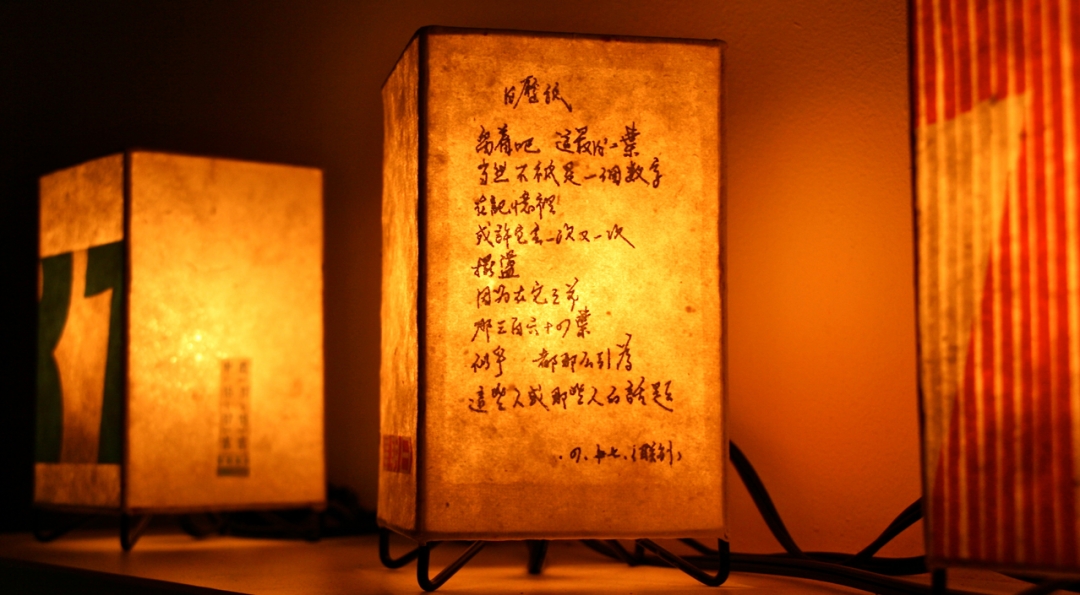 31
日曆紙
留着吧 這最后一葉
當然不祗是一個數字
在記憶裡
或許它會一次又一次
擺盪
因为在它之前
那三百六十四葉
似乎 都那么引為
這些人或那些人的話題
四、廿七、